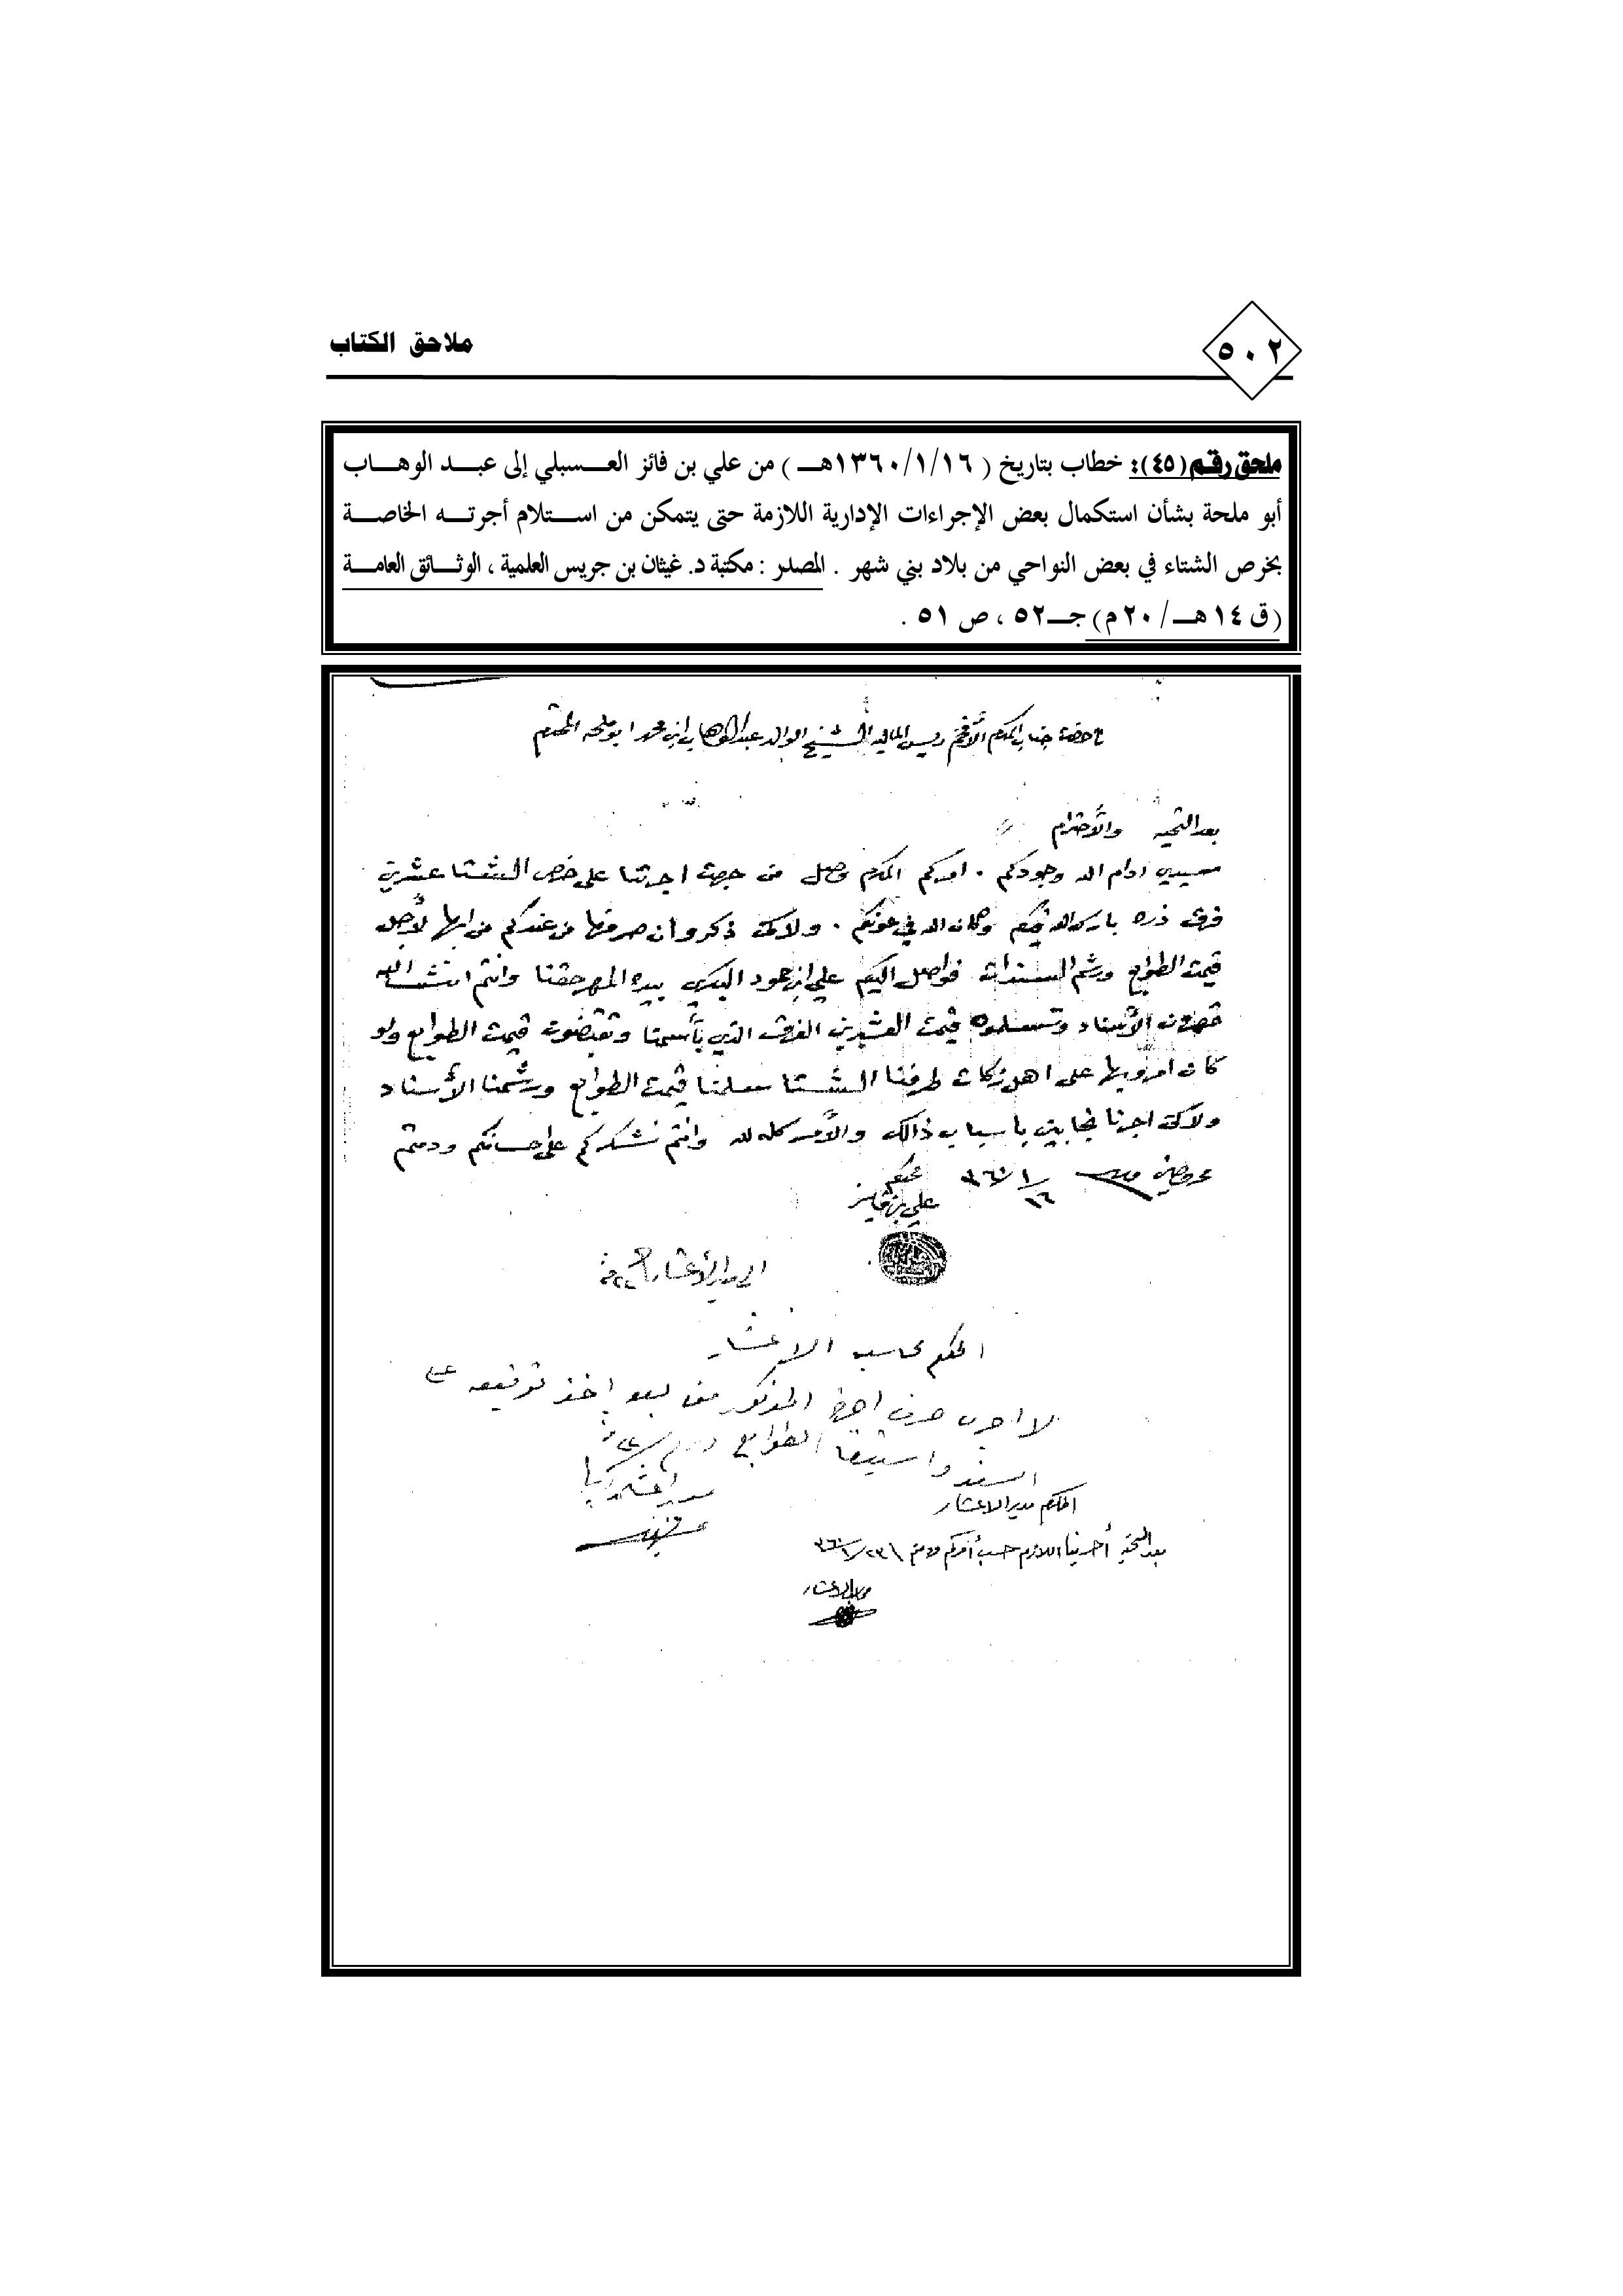 ملاحق الكتاب
٥٠٢
ملحق رقم (٤٥): خطاب بتاريخ ( ١٣٦٠/١/١٦هـ ) من علي بن فائز العسبلي إلى عبد الوهاب
أبو ملحة بشأن استكمال بعض الإجراءات الإدارية اللازمة حتى يتمكن من استلام أجرته الخاصة
بخرص الشتاء في بعض النواحي من بلاد بني شهر . المصدر : مكتبة د. غيثان بن جريس العلمية ، الوثائق العامة
(ق ١٤هـ/ ٢٠م) جـ٥٢ ، ص ٥١ .
حضرة جناب المكرم الأفخم رييس الماليه الشيخ الوالد عبدالوهاب ابن محمد ابو ملحه المحترم
بعد التحيه والأحترام
سيدي ادام الله وجودكم . امركم المكرم وصل من جهت اجرتنا على خرص الشتا عشرين
فرق ذره بارك الله فيكم وكان الله في عونكم . ولاكن ذكروا ان صرفها من عندكم من ابها لأجل
قيمت الطوابع ورشم السندات فواصل اليكم علي ابن البكري بيده المهر حقنا وانتم انشالله
الأسناد قيمت العشرين الفرق الذي بأسمنا وتقبضون قيمت الطوابع ولو
كان على اهل زكات طرفنا الشتا سلمنا قيمت الطوابع ورشمنا الأسناد
ولاكن اجرنا بأسباب ذالك والأمر كله لله وانتم نشكركم على احسانكم ودمتم
١٦/١/٣٦٠
علي بن فايز
المكرم محاسب الاعشار
لا اجراء صرف اجرة المذكور من بعد اخذ توقيعه على
السند واستيفا الطوابع
المكرم مدير الاعشار
بعد التحية أجرينا اللازم حسب أمركم